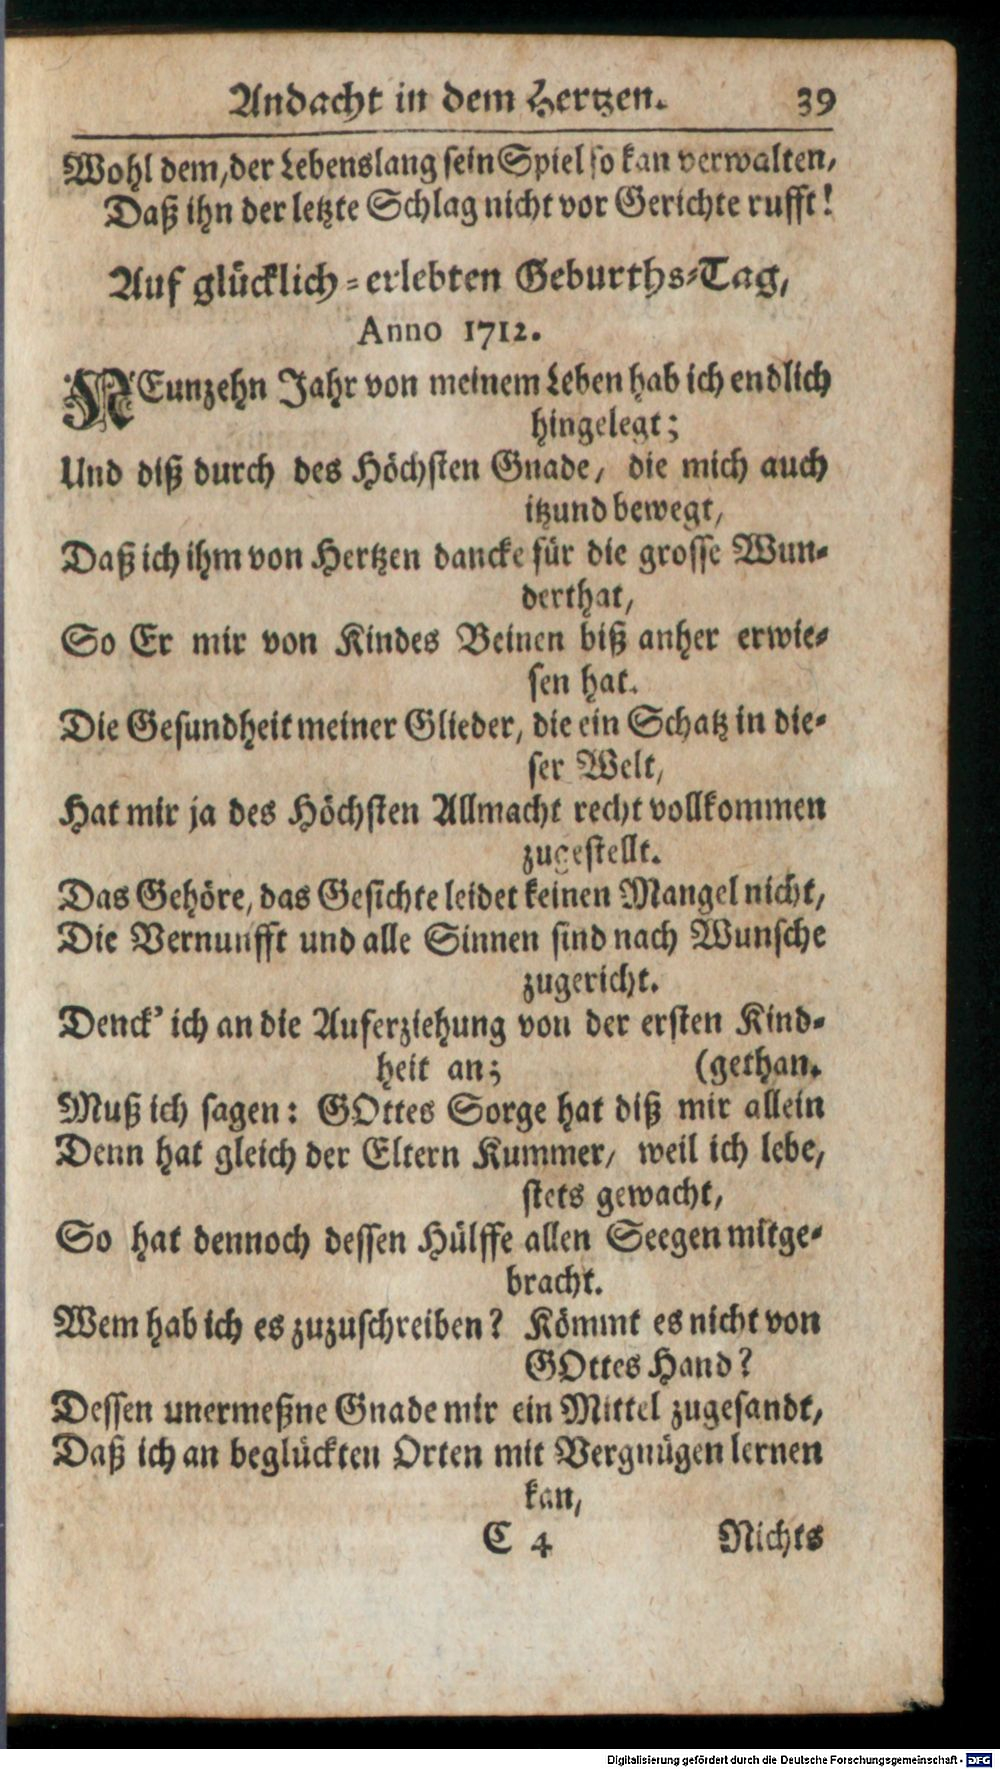 Andacht in dem Hertzen. 39
Wohl dem, der Lebenslang sein Spiel so kan verwalten,
Daß ihn der letzte Schlag nicht vor Gerichte rufft!
Auf glücklich-erlebten Geburths-Tag,
Anno 1712.
NEunzehn Jahr von meinem Leben hab ich endlich
hingelegt;
Und diß durch des Höchsten Gnade, die mich auch
itzund bewegt,
Daß ich ihm von Hertzen dancke für die grosse Wun-
derthat,
So Er mir von Kindes Beinen biß anher erwie-
sen hat.
Die Gesundheit meiner Glieder, die ein Schatz in die-
ser Welt,
Hat mir ja des Höchsten Allmacht recht vollkommen
zugestellt.
Das Gehöre, das Gesichte leidet keinen Mangel nicht,
Die Vernunfft und alle Sinnen sind nach Wunsche
zugericht.
Denck' ich an die Auferziehung von der ersten Kind-
heit an; (gethan.
Muß ich sagen: GOttes Sorge hat diß mir allein
Denn hat gleich der Eltern Kummer, weil ich lebe,
stets gewacht,
So hat dennoch dessen Hülffe allen Seegen mitge-
bracht.
Wem hab ich es zuzuschreiben? Kömmt es nicht von
GOttes Hand?
Dessen unermeßne Gnade mir ein Mittel zugesandt,
Daß ich an beglückten Orten mit Vergnügen lernen
kan,
C 4 Nichts
Digitalisierung gefördert durch die Deutsche Forschungsgemeinschaft - DFG